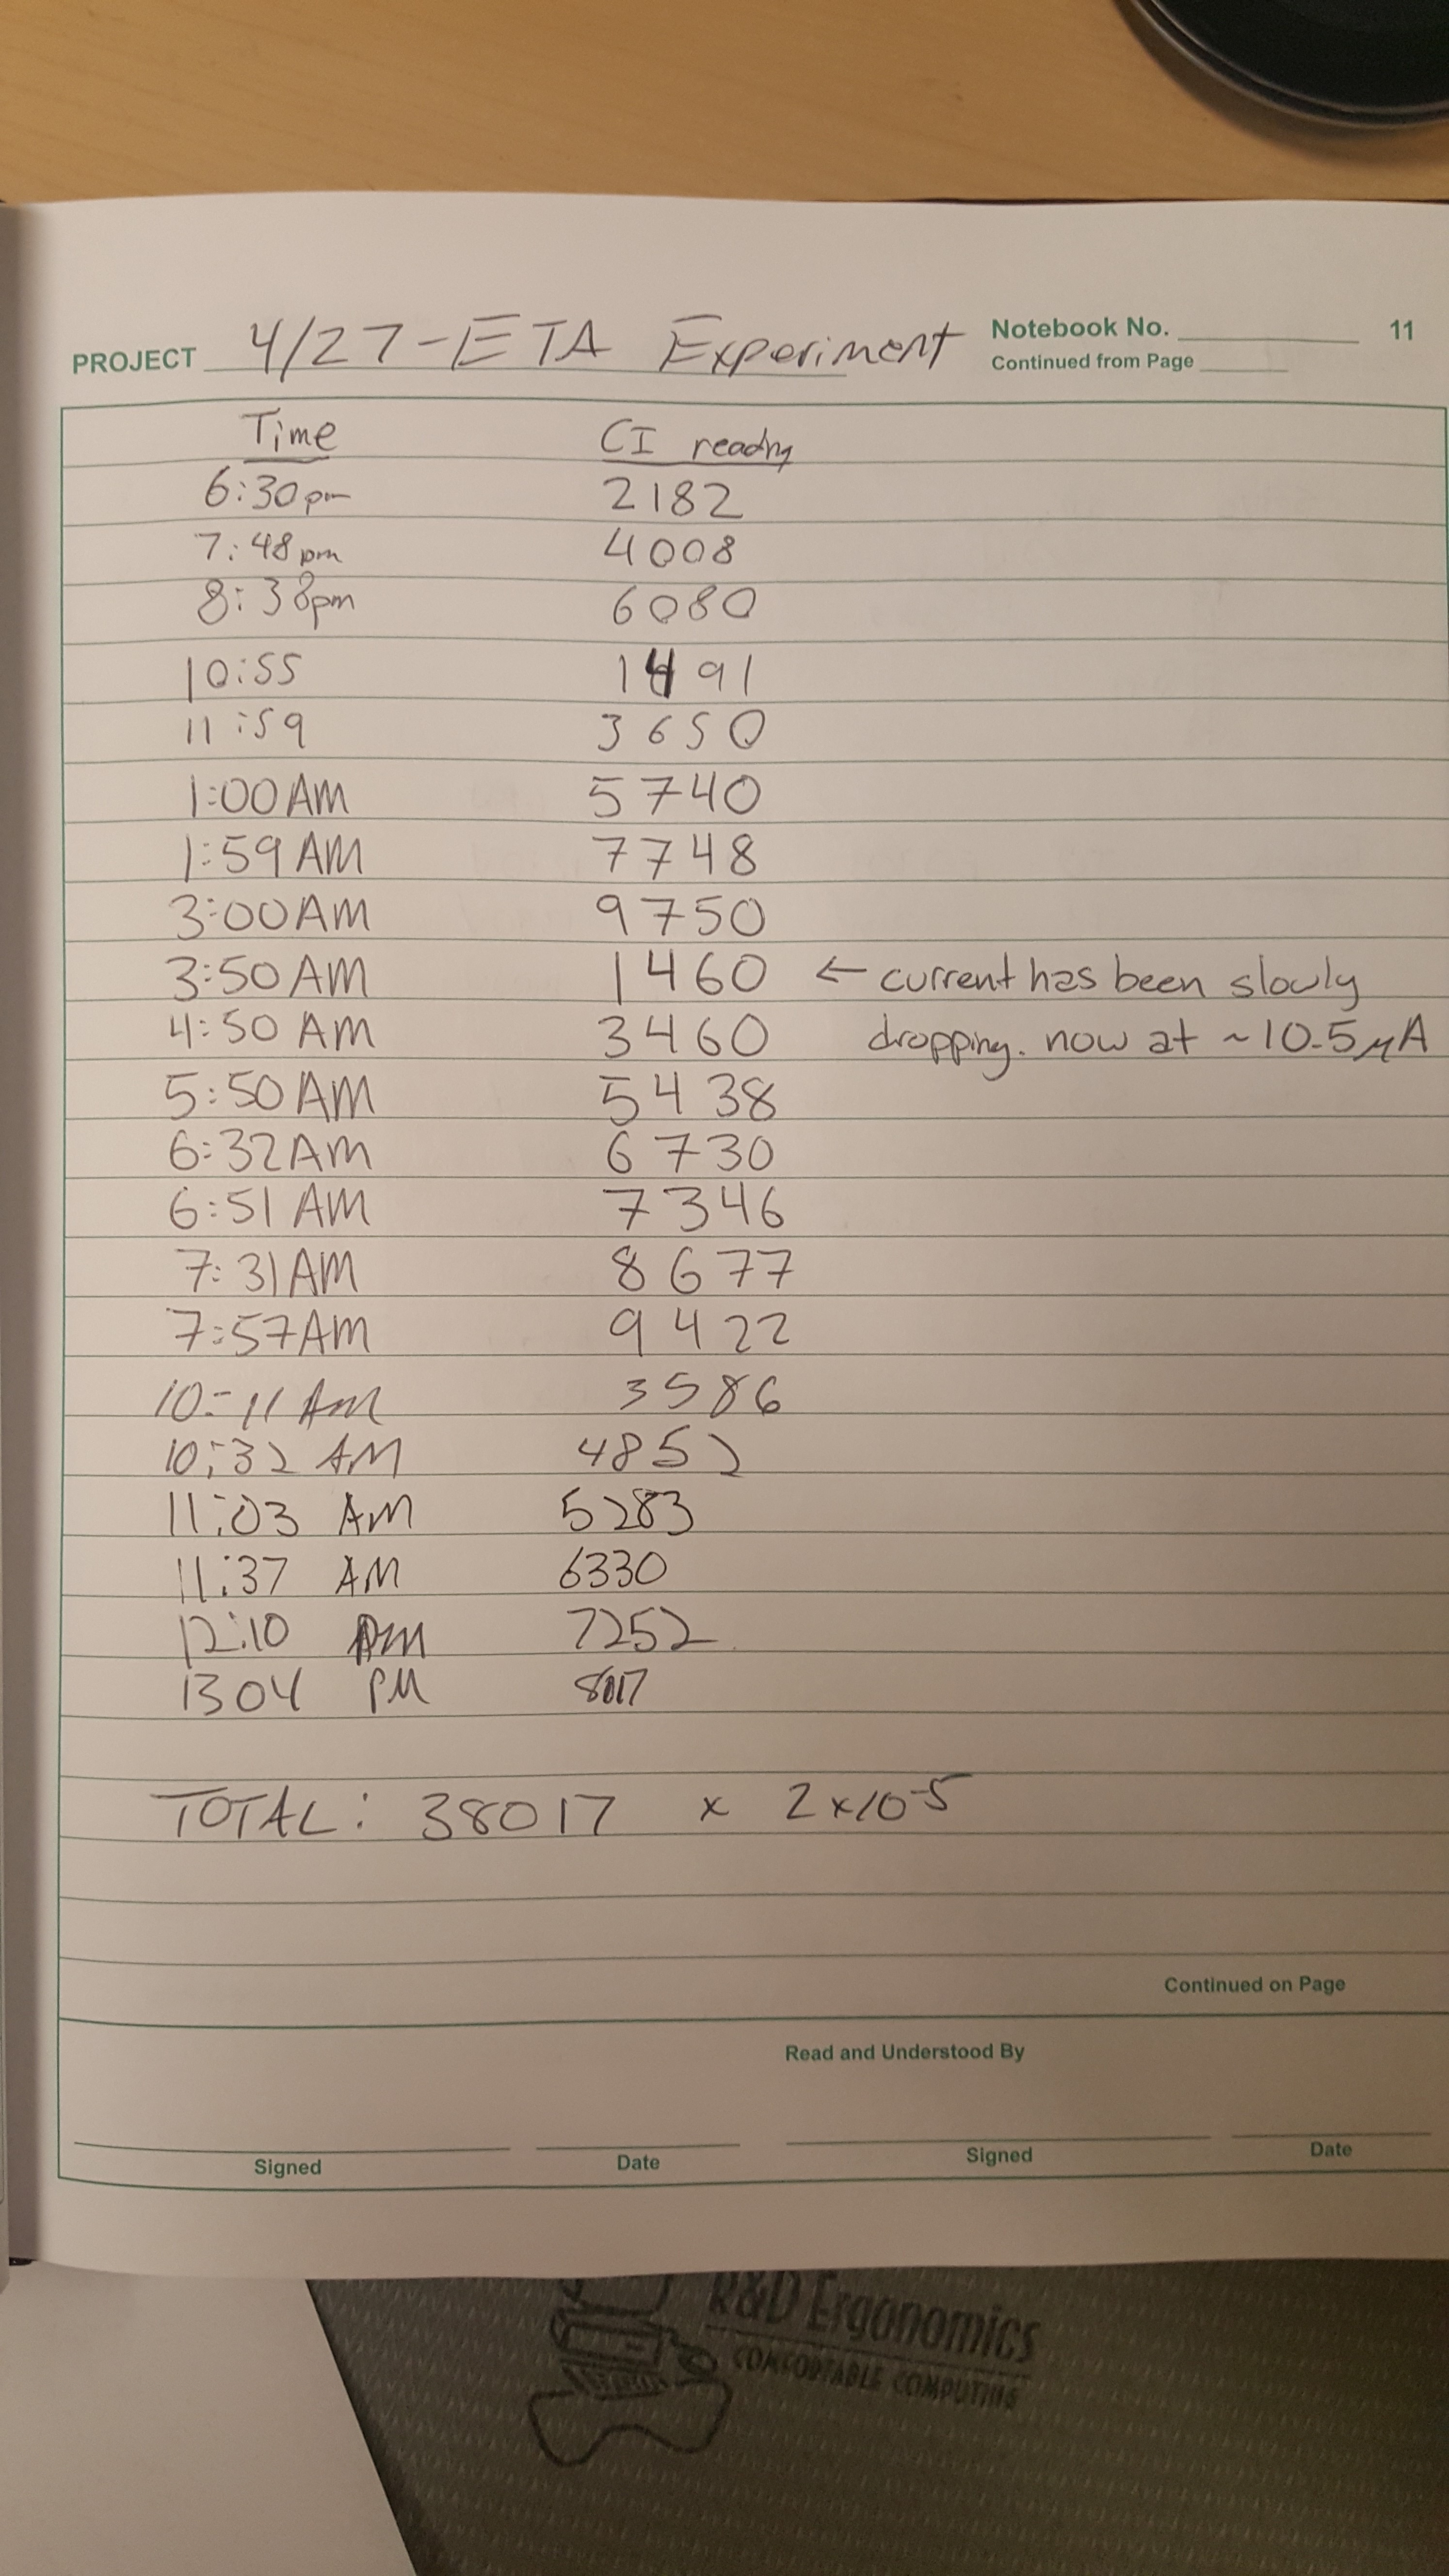 PROJECT 4/27-ETA Experiment
Notebook No. 11
Continued from Page
Time CI readng
6:30pm 2182
7:48pm 4008
8:38pm 6080
10:55 1491
11:59 3650
1:00AM 5740
1:59AM 7748
3:00AM 9750
3:50AM 1460 ← current has been slowly
4:50 AM 3460 dropping. now at ~10.5μA
5:50AM 5438
6:32AM 6730
6:51 AM 7346
7:31AM 8677
7:57AM 9422
10:11 AM 3586
10:32 AM 4852
11:03 AM 5283
11:37 AM 6330
12:10 PM 7252
1304 PM 8017
TOTAL: 38017 x 2x10-5
Continued on Page
Read and Understood By
Signed Date Signed Date
R&D Ergonomics
COMFORTABLE COMPUTING